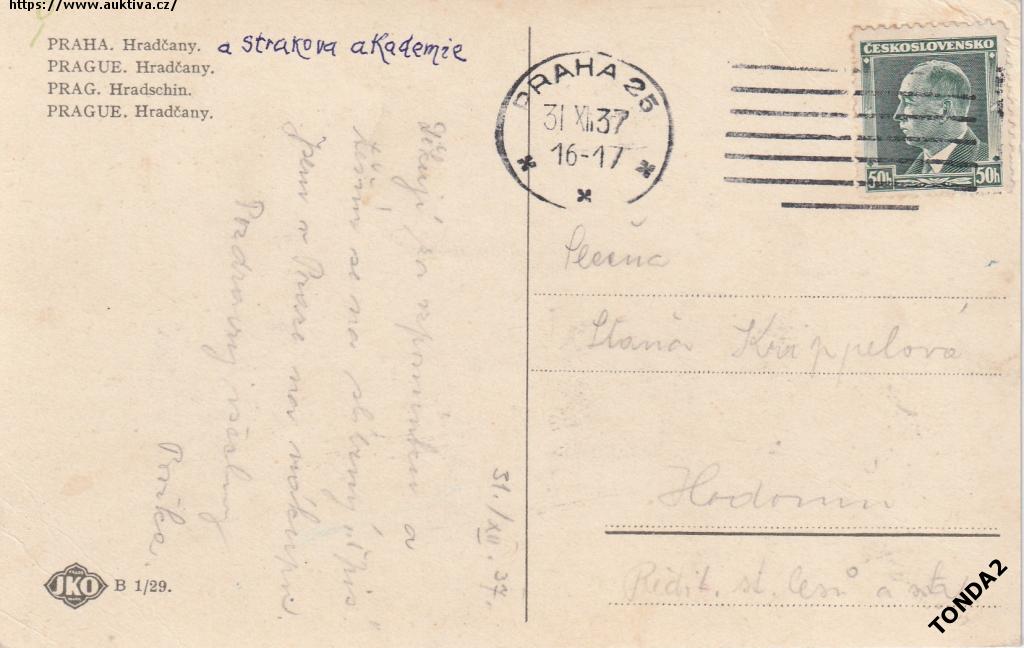 https://www.auktiva.cz/
PRAHA. Hradčany. a strakova akademie
PRAGUE. Hradčany.
PRAG. Hradschin.
PRAGUE. Hradčany.
PRAHA 25
31 XII 37
16-17
ČESKOSLOVENSKO
50h 50h
31./XII. 37.
Děkuji za vzpomínku a
těším se na slíbený
jsem v Praze na nákupu
Pozdravy všechny
Slečna
Stáňa Krippelová
Hodonín
Ředit. st. lesů a
JKO B 1/29.
TONDA2